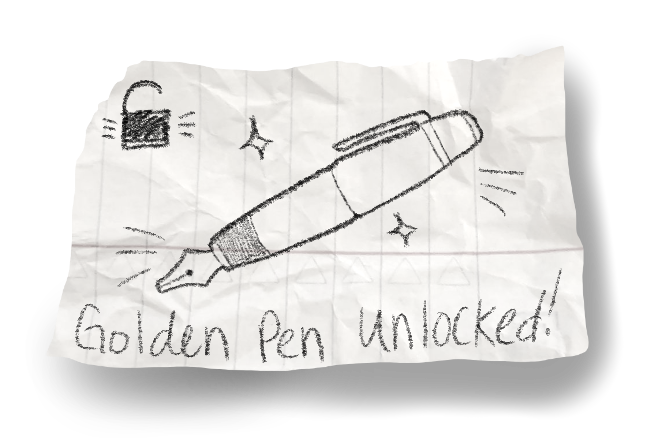 Golden Pen Unlocked!